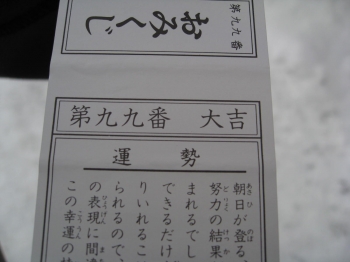 第九九番
おみくじ
第九九番 大吉
運勢
朝日が登る
努力の結果
まれるでし
できるだけ
りいれるこ
られるので
の表現に間違
この幸運の